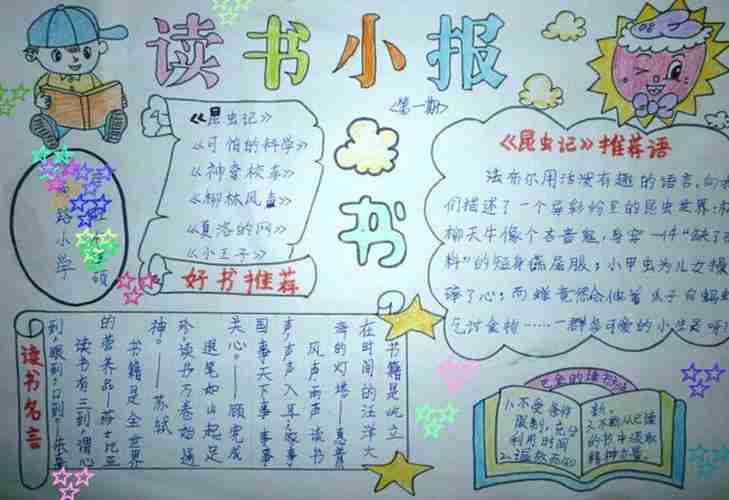 读书小报
<第一期>
《昆虫记》
《可怕的科学》
《神奇校车》
《柳林风声》
《夏洛的网》
《小王子》
好书推荐
书
路小学
硕
《昆虫记》推荐语
法布尔用活泼有趣的语言,向
们描述了一个异彩纷呈的昆虫世界:
柳天牛像个吝啬鬼,身穿一件“缺了
料”的短身燕尾服;小甲虫为儿女操
碎了心;而蝉竟然会伸着爪子向蚂
乞讨食物……一群多可爱的小生灵呀
读书名言
书籍是屹立
在时间的汪洋大
海的灯塔——惠普
风声雨声读书
声,声声入耳;家事
国事天下事事事
关心。——顾完成
退笔如山起足
珍,读书万卷始通
神。——苏轼
书籍是全世界
的营养品——莎士比亚
读书有三到,谓心
到,眼到,口到。
巴金的读书法
1.不受条件
限制,充分
利用时间
2.温故而知
新。
2.不断从已读
的书中汲取
精神力量。